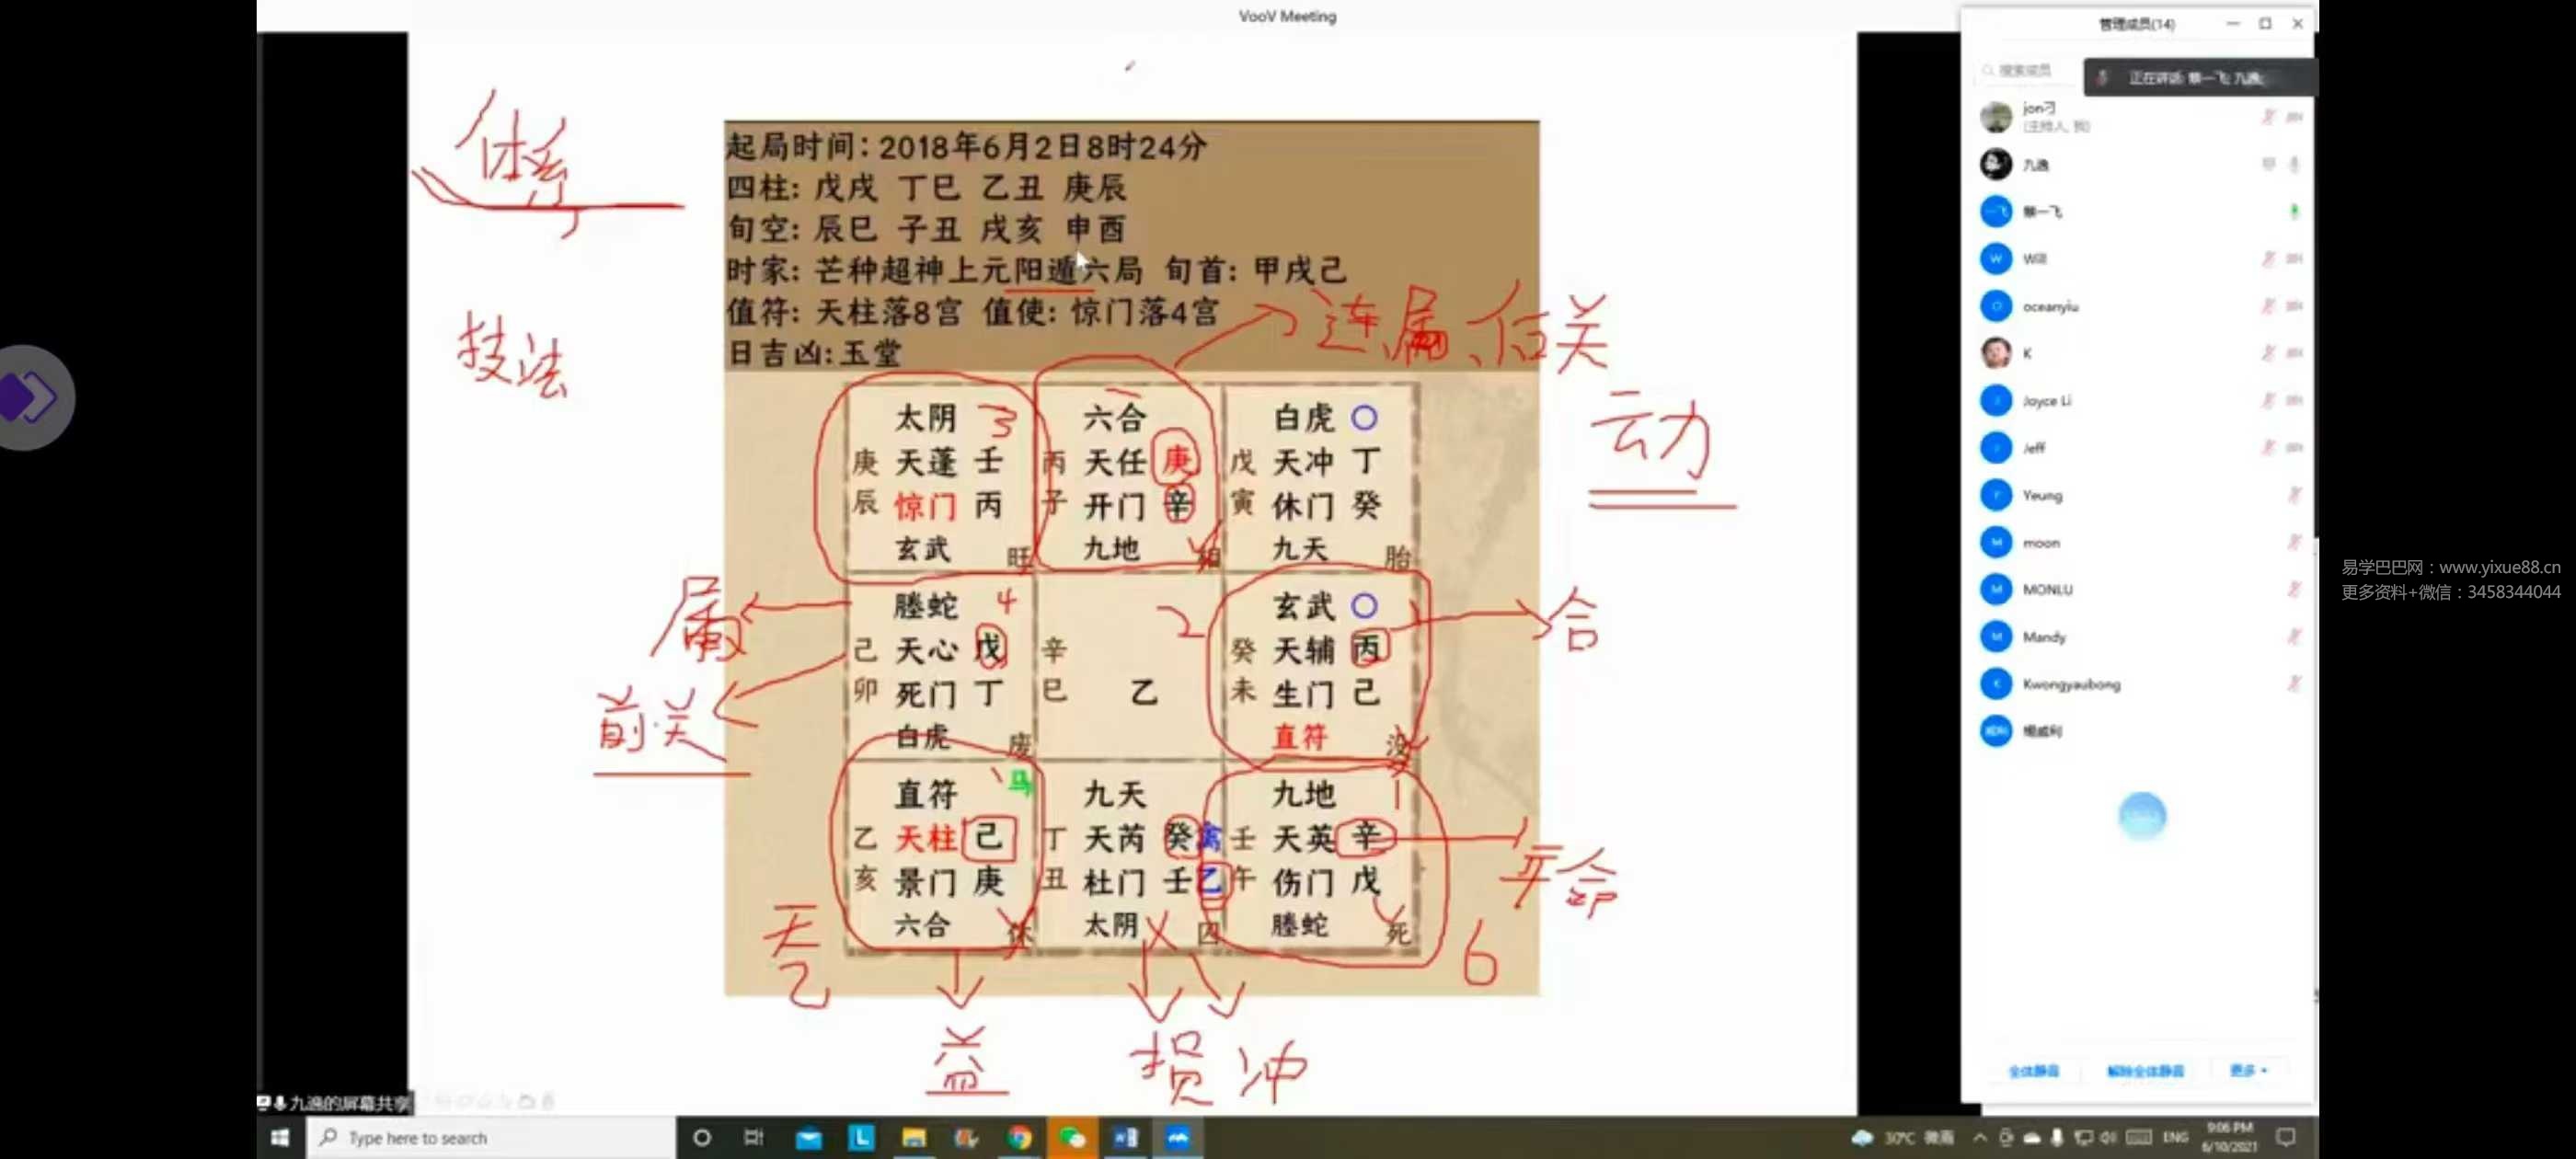 VooV Meeting
管理成员(14)
搜索成员
正在讲话: 蔡一飞; 九逸;
jon刁
(主持人, 我)
九逸
蔡一飞
Will
oceanyiu
K
Joyce Li
Jeff
Yeung
moon
MONLU
Mandy
Kwongyaubong
全体静音
解除全体静音
更多
体系
技法
起局时间: 2018年6月2日8时24分
四柱: 戊戌 丁巳 乙丑 庚辰
旬空: 辰巳 子丑 戌亥 申酉
时家: 芒种超神上元阳遁六局 旬首: 甲戌己
值符: 天柱落8宫 值使: 惊门落4宫
日吉凶: 玉堂
连、属、后关
动
太阴 3
庚 天蓬 壬
辰 惊门 丙
玄武 旺
六合
丙 天任 庚
子 开门 辛
九地 相
白虎 〇
戊 天冲 丁
寅 休门 癸
九天 胎
螣蛇 4
己 天心 戊
卯 死门 丁
白虎 废
属
前关
2
辛
巳 乙
玄武 〇
癸 天辅 丙
未 生门 己
直符 没
合
直符 马
乙 天柱 己
亥 景门 庚
六合 休
天乙
益
九天
丁 天芮 癸 禽
丑 杜门 壬 乙
太阴 囚
损 冲
九地 1
壬 天英 辛
午 伤门 戊
螣蛇 死
6
年命
易学巴巴网：www.yixue88.cn
更多资料+微信：3458344044
九逸的屏幕共享
Type here to search
30°C 微雨
ENG
9:06 PM
6/10/2021